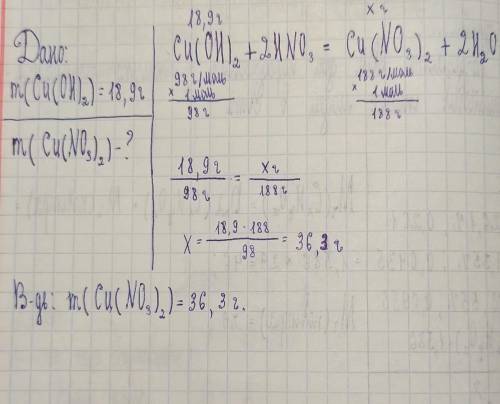 Дано:
m(Cu(OH)₂) = 18,9г
m(Cu(NO₃)₂) - ?
18,9г x г
Cu(OH)₂ + 2HNO₃ = Cu(NO₃)₂ + 2H₂O
98 г/моль 188 г/моль
x 1 моль x 1 моль
98 г 188 г
18,9 г / 98 г = x г / 188 г
X = 18,9 · 188 / 98 = 36,3 г
В-дь: m(Cu(NO₃)₂) = 36,3 г.